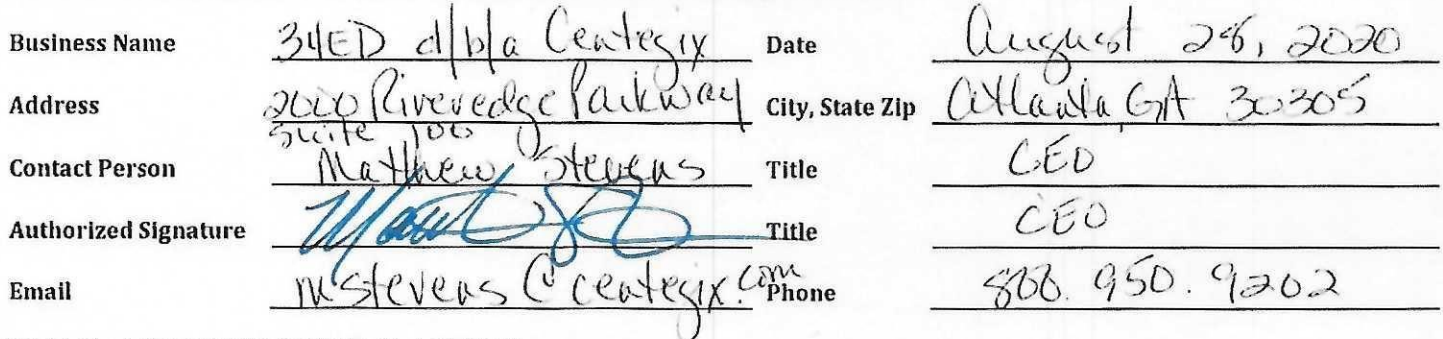 Business Name 34ED d/b/a Centegix Date August 28, 2020
Address 2000 Riveredge Parkway City, State Zip Atlanta GA 30305
Suite 100
Contact Person Matthew Stevens Title CEO
Authorized Signature Title CEO
Email mstevens@centegix.com Phone 800.950.9202